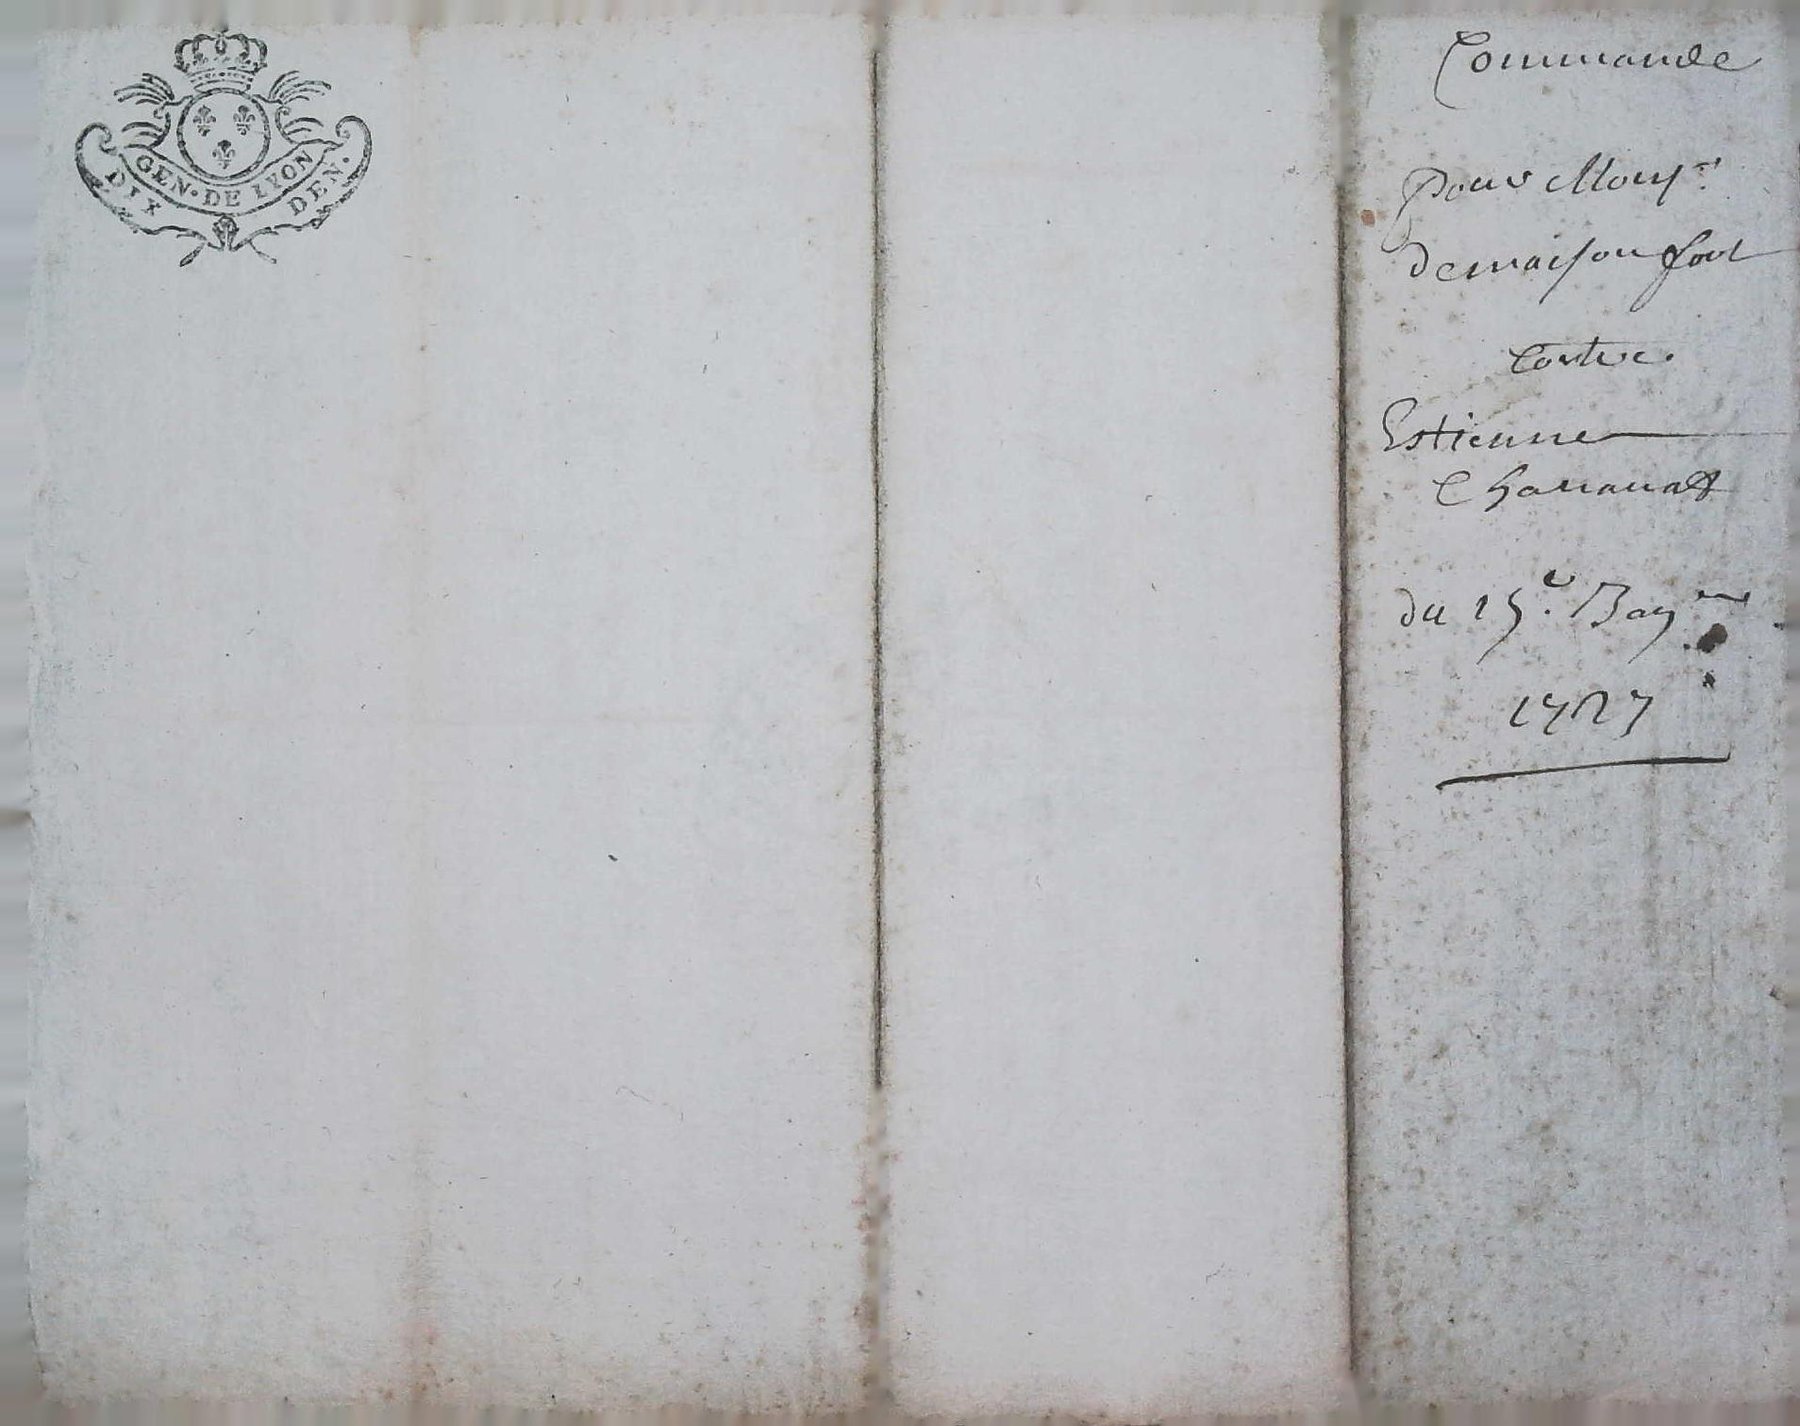 GEN. DE LYON
DIX DEN.
Commande
pour Monsr
demaisonfort
Contre
Estienne
Charauat
du 15e
1727